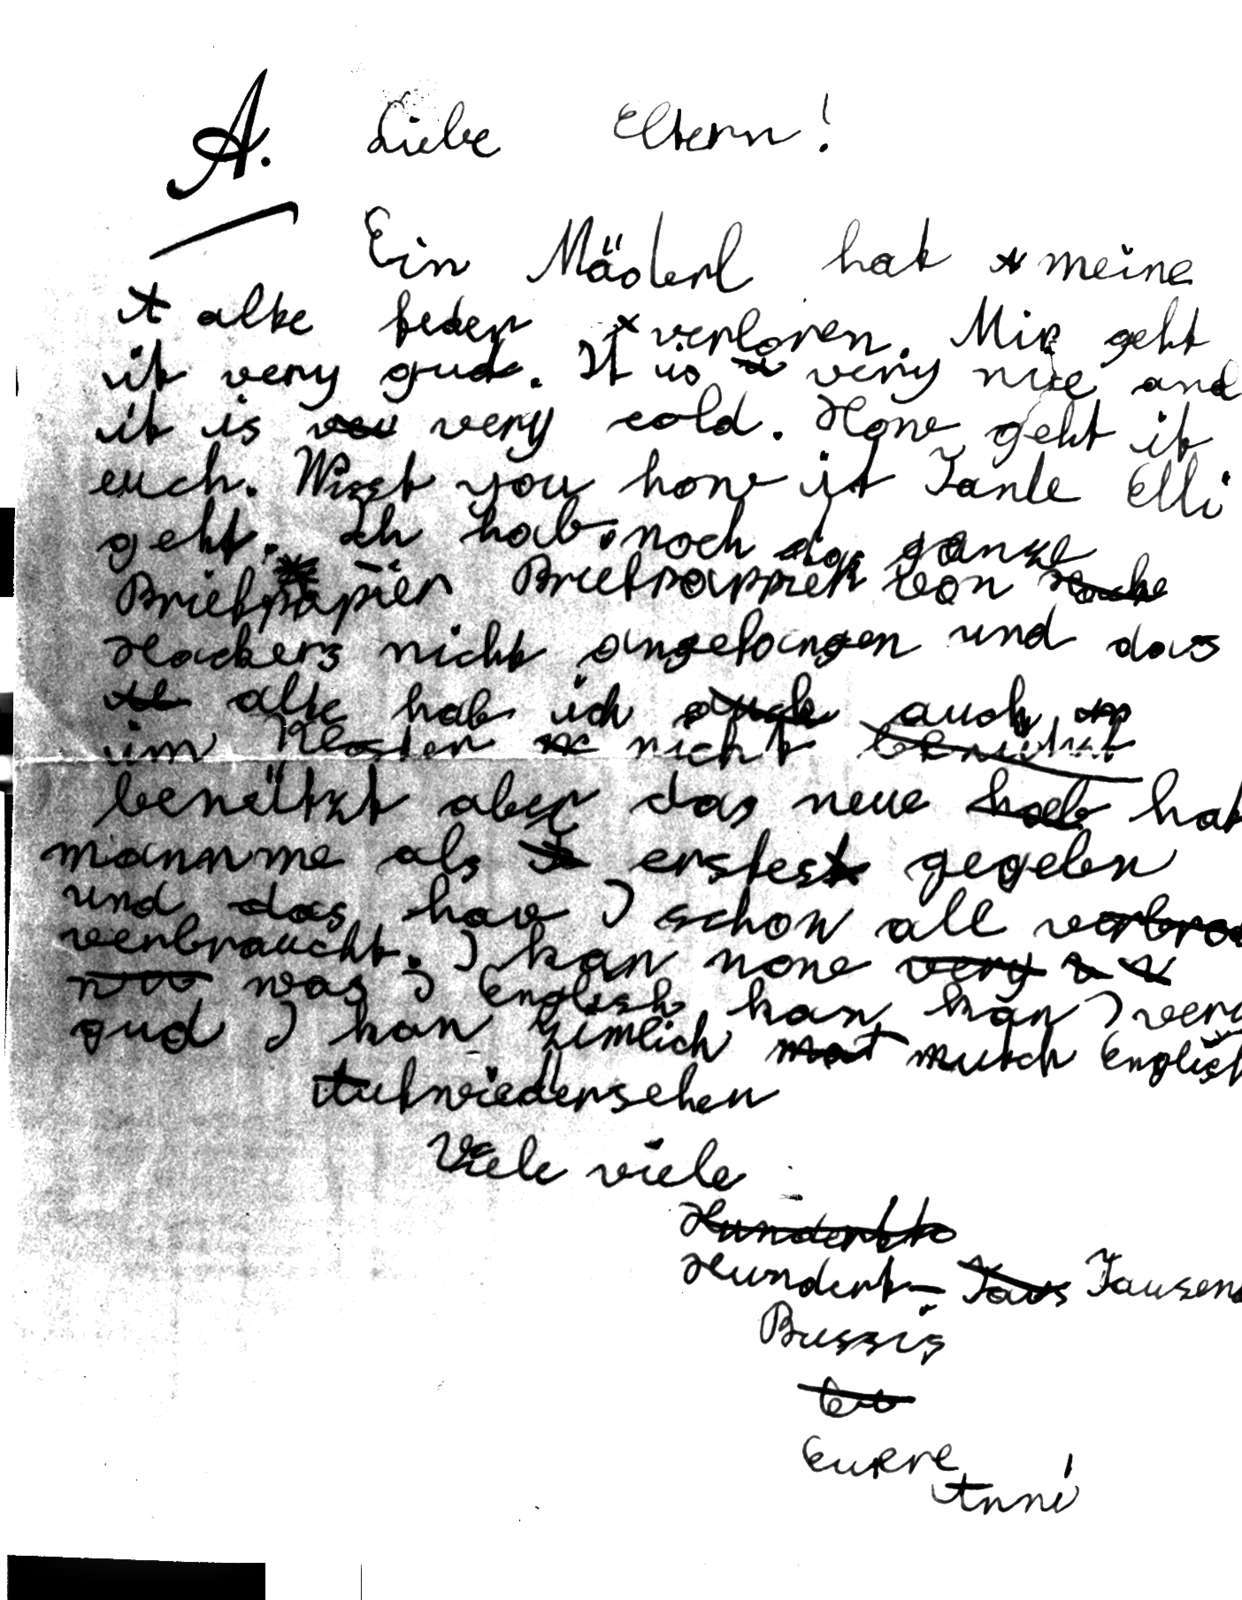 A. Liebe Eltern!
Ein Mäderl hat meine
alte feder verloren. Mir geht
it very gud. It is very nice and
it is very cold. How geht it
euch. Wisst you how it Tante Elli
geht. Ich hab noch das ganze
Briefpapier Briefpappier von
Hackers nicht angefangen und das
alte hab ich auch
im Kloster nicht
benützt aber das neue hat
mannme als erstes gegeben
und das hav I schon all
verbraucht. I kan none
was I English kan kan I very
gud I kan zimlich mutch English
Aufwiedersehen
Viele viele
Hundert- Tausend
Bussis
Euere
Anni